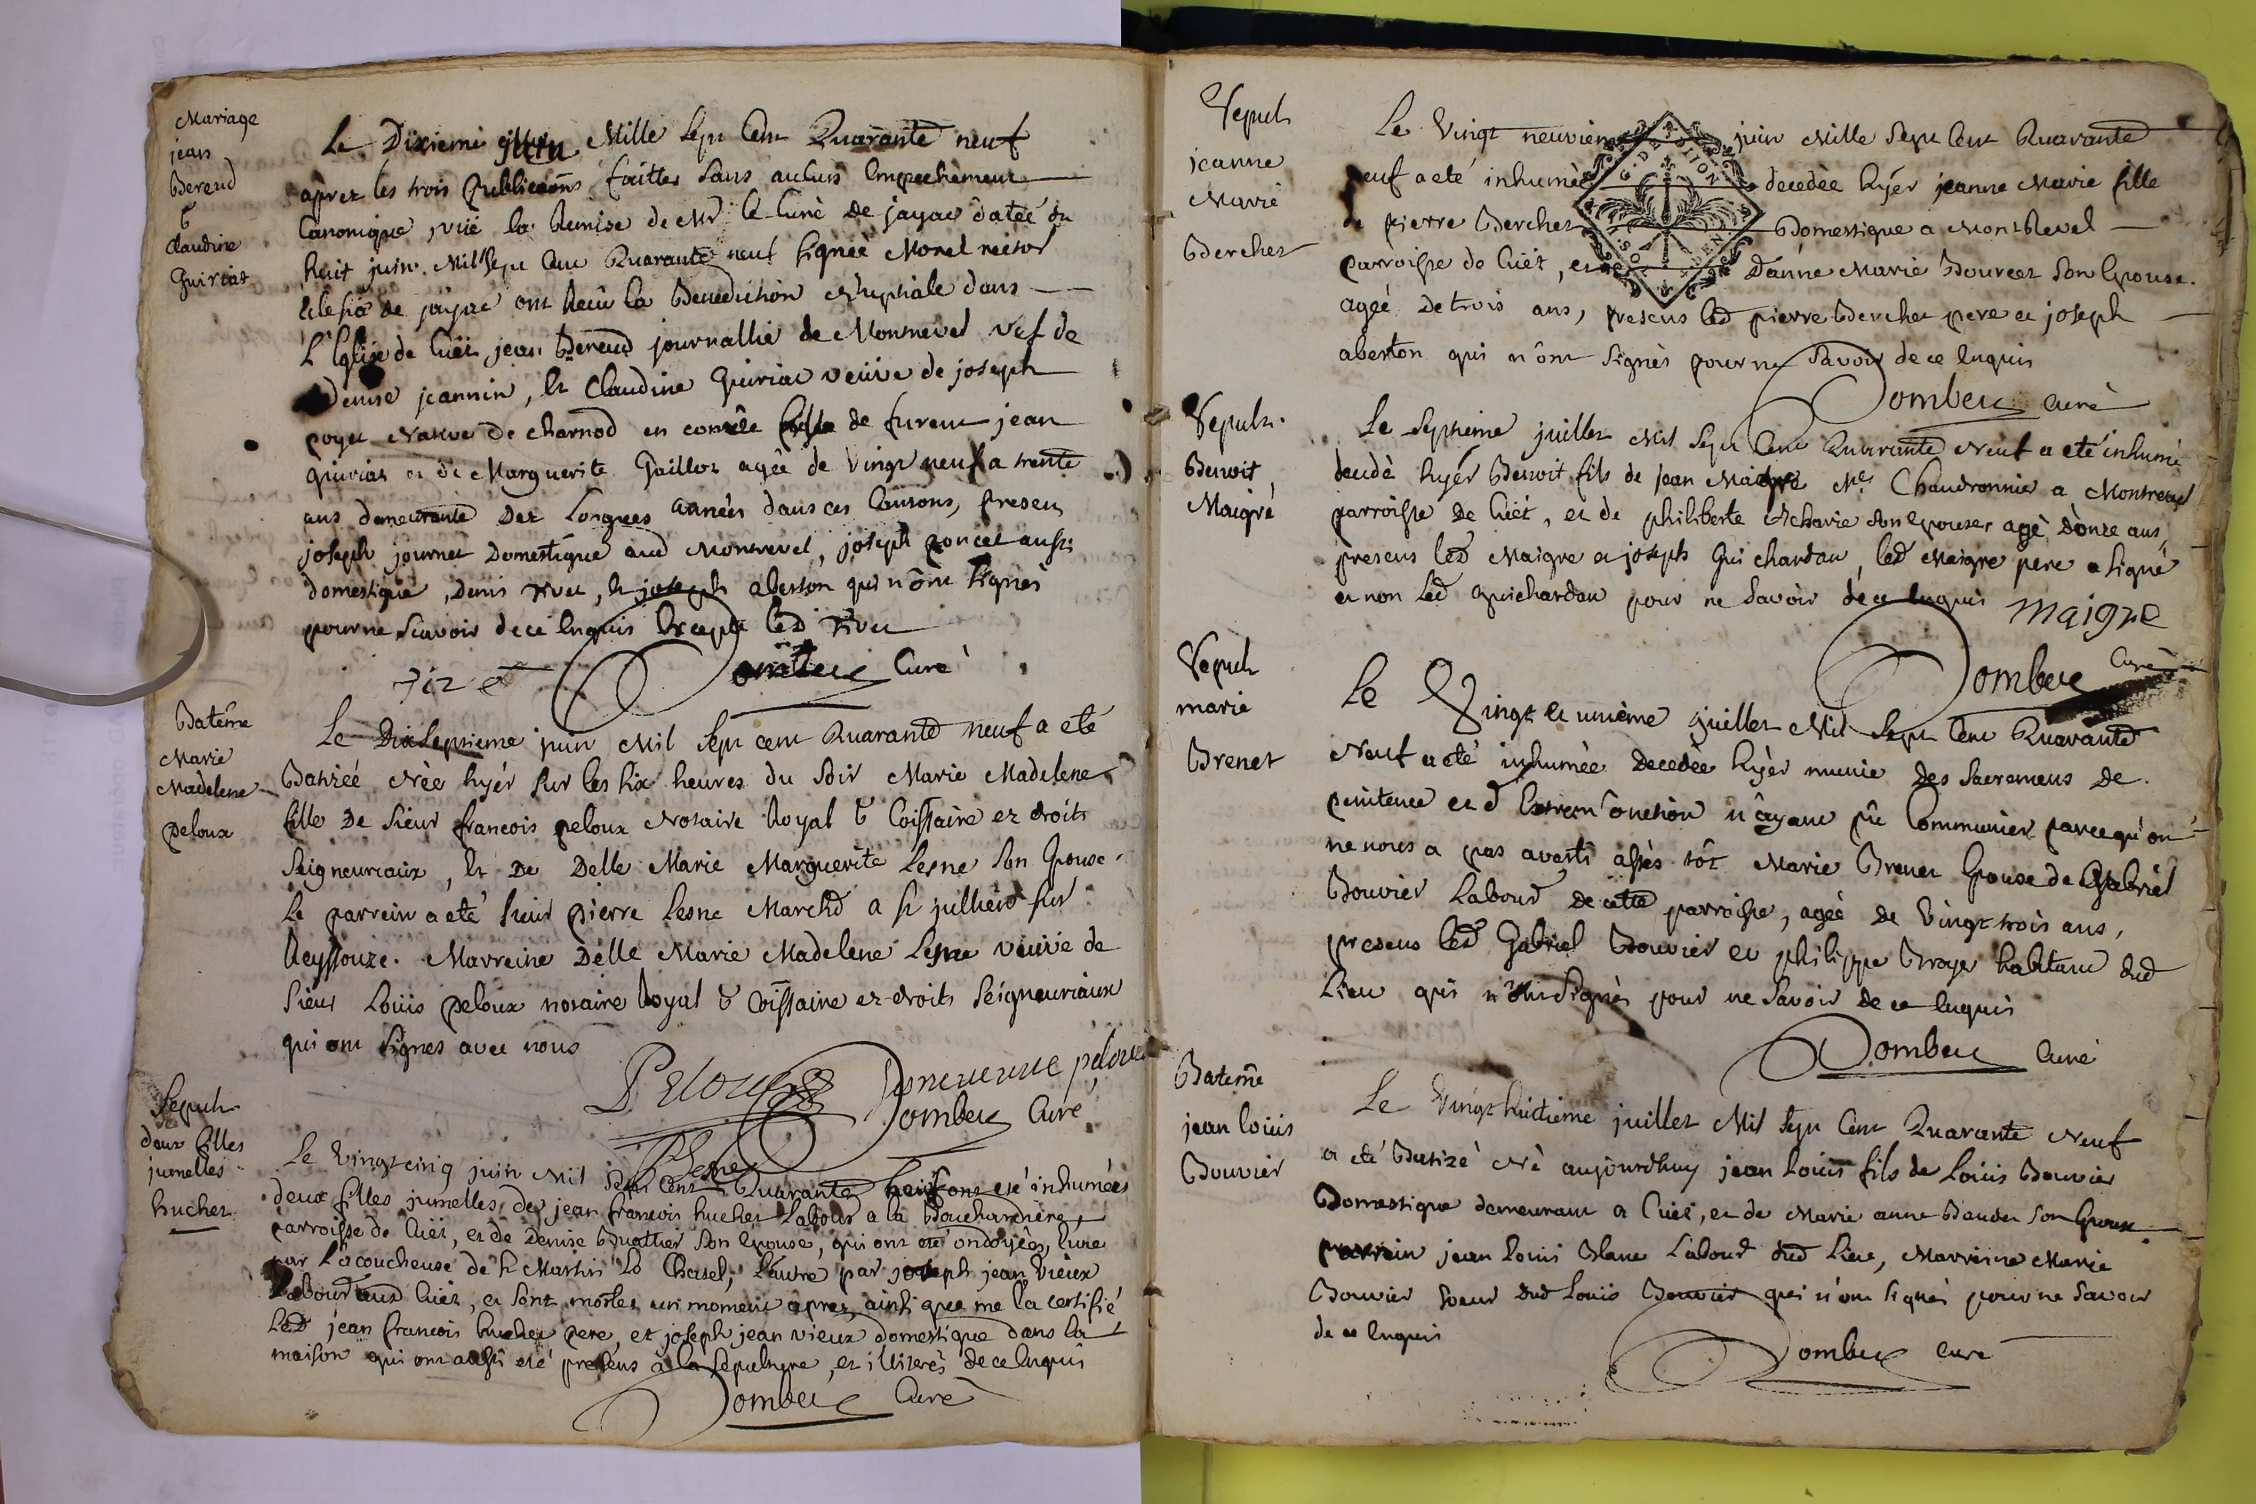 Mariage
jean
Bereud
&
Claudine
Guiriat
Le Dixieme juin Mille Sept Cent Quarante neuf
âprez les trois Publicaôns faittes Sans aucun Empechement
Canonique, vüe la Remise de Mr le Curé de jayac datée du
huit juin Mil Sept Cent Quarante neuf Signée Morel
de jayac ont Recu la Benediction Nuptiale dans
L'Eglise de Cuët jean Bereud journallié de Montrevel Vef de
Denise jeannin, Et Claudine Guiriat veüve de joseph
poyet Native de Charnod en comté fille de furent jean
guiriat et de Marguerite Gaillot agée de Vingt neuf a trente
ans demeurante Dez Longues années dans ces Cantons, presens
joseph journet Domestique aud Montrevel, joseph poncet aussi
domestique, Denis Rivet, et joseph aberton qui n'ônt Signés
pour ne Scavoir de ce Enquis Excepté led Rivet
Dombey Curé
Batême
Marie
Madelene
peloux
Le Dix Septieme juin Mil Sept cent Quarante neuf a eté
Batizéé Née hyér sur les Six heures du Soir Marie Madelene
fille De Sieur francois peloux Notaire Royal & Coissaire ez droits
Seigneuriaux, Et De Delle Marie Marguerite Lesne Son Epouse
Le parrein a eté Sieur pierre Lesne Marchd a St jullien sur
Reyssouze. Marreine Delle Marie Madelene Lesne veuve de
Sieur Louis peloux notaire Royal & Coissaire ez droits Seigneuriaux
qui ont Signes avec nous
Peloux
Lesne veuve peloux
Dombey Curé
Lesne
Sepult
deux filles
jumelles
huchet
Le Vingt cinq juin Mil Sept Cent Quarante Neuf ont eté inhumées
deux filles jumelles de jean francois huchet Labour a la Bouchardière
parroisse de Cuët, et de Denise Buattier Son Epouse, qui ont eté ondoyées, lune
par L'acoucheuse de St Martin Le Chatel, L'autre par joseph jean Vieux
Labour aud Cuët, et Sont mortes un moment âprez, ainsi que me l'a certifié
Led jean francois huchet pere, et joseph jean vieux domestique dans la
maison qui ont aussi eté presens à la Sepulture, et illiterés de ce Enquis
Dombey Curé
Sepult
jeanne
Marie
Berchet
Le Vingt neuvieme juin Mille Sept Cent Quarante
neuf a eté inhumée decedée hyér jeanne Marie fille
de pierre Berchet Domestique a Montrevel
parroisse de Cuët, et D'anne Marie Bourcet Son Epouse.
agéé De trois ans, presens led pierre Berchet pere et joseph
aberton qui n'ônt Signés pour ne Savoir de ce Enquis
G. DE DIJON
Dombey Curé
Sepult.
Benoit
Maigré
Le Septieme juillet Mil Sept Cent Quarante Neuf a eté inhumé
decedé hyér Benoit fils de jean Maigre Me Chaudronnier a Montrevel
parroisse de Cuët, et de philiberte Son Epouse, agé d'onze ans,
presens led Maigre et joseph Guichardan, led Maigre pere a Signé
et non led Guichardan pour ne Savoir de ce Enquis
maigre
Dombey Curé
Sepult
marie
Brenet
Le Vingt et unième juillet Mil Sept Cent Quarante
Neuf a eté inhumée Decedée hyèr munie des Sacremens de
penitence et d'Extrem'Onction n'ayant pû Communier parce qu'on
ne nous a pas averti assès tôt Marie Brenet Epouse de Gabriel
Bouvier Labour de cette parroisse, agéé de Vingt trois ans,
presens led Gabriel Bouvier et philippe Broyer habitant dud
Lieu qui n'ônt Signès pour ne Savoir de ce Enquis
Dombey Curé
Batême
jean louis
Bouvier
Le Vingt huitieme juillet Mil Sept Cent Quarante Neuf
a eté Batizé Né aujourd'huy jean Louis fils de Louis Bouvier
Domestique demeurant a Cuët, et de Marie anne Baudet Son Epouse
parrein jean louis Blanc Labour dud Lieu, Marreine Marie
Bouvier Soeur dud Louis Bouvier qui n'ônt Signés pour ne Savoir
de ce Enquis
Dombey Curé